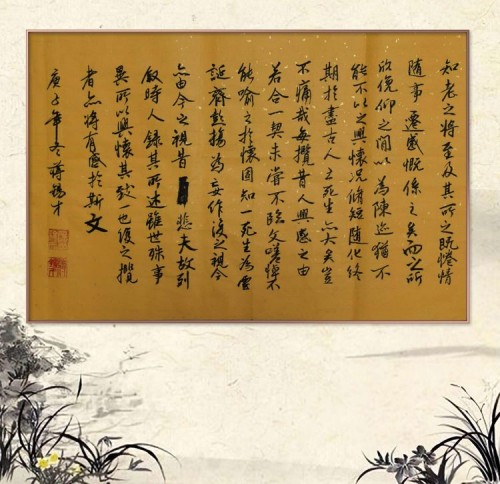 知老之将至及其所之既惓情
随事遷感慨係之矣向之所
欣俛仰之间以為陳迹猶不
能不以之興懷况脩短随化终
期於盡古人云死生亦大矣豈
不痛哉每攬昔人興感之由
若合一契未嘗不臨文嗟悼不
能喻之於懷固知一死生為虚
誕齊彭殤為妄作後之視今
亦由今之視昔悲夫故列
叙時人錄其所述雖世殊事
異所以興懷其致一也後之攬
者亦将有感於斯文
庚子年冬蒋锡才